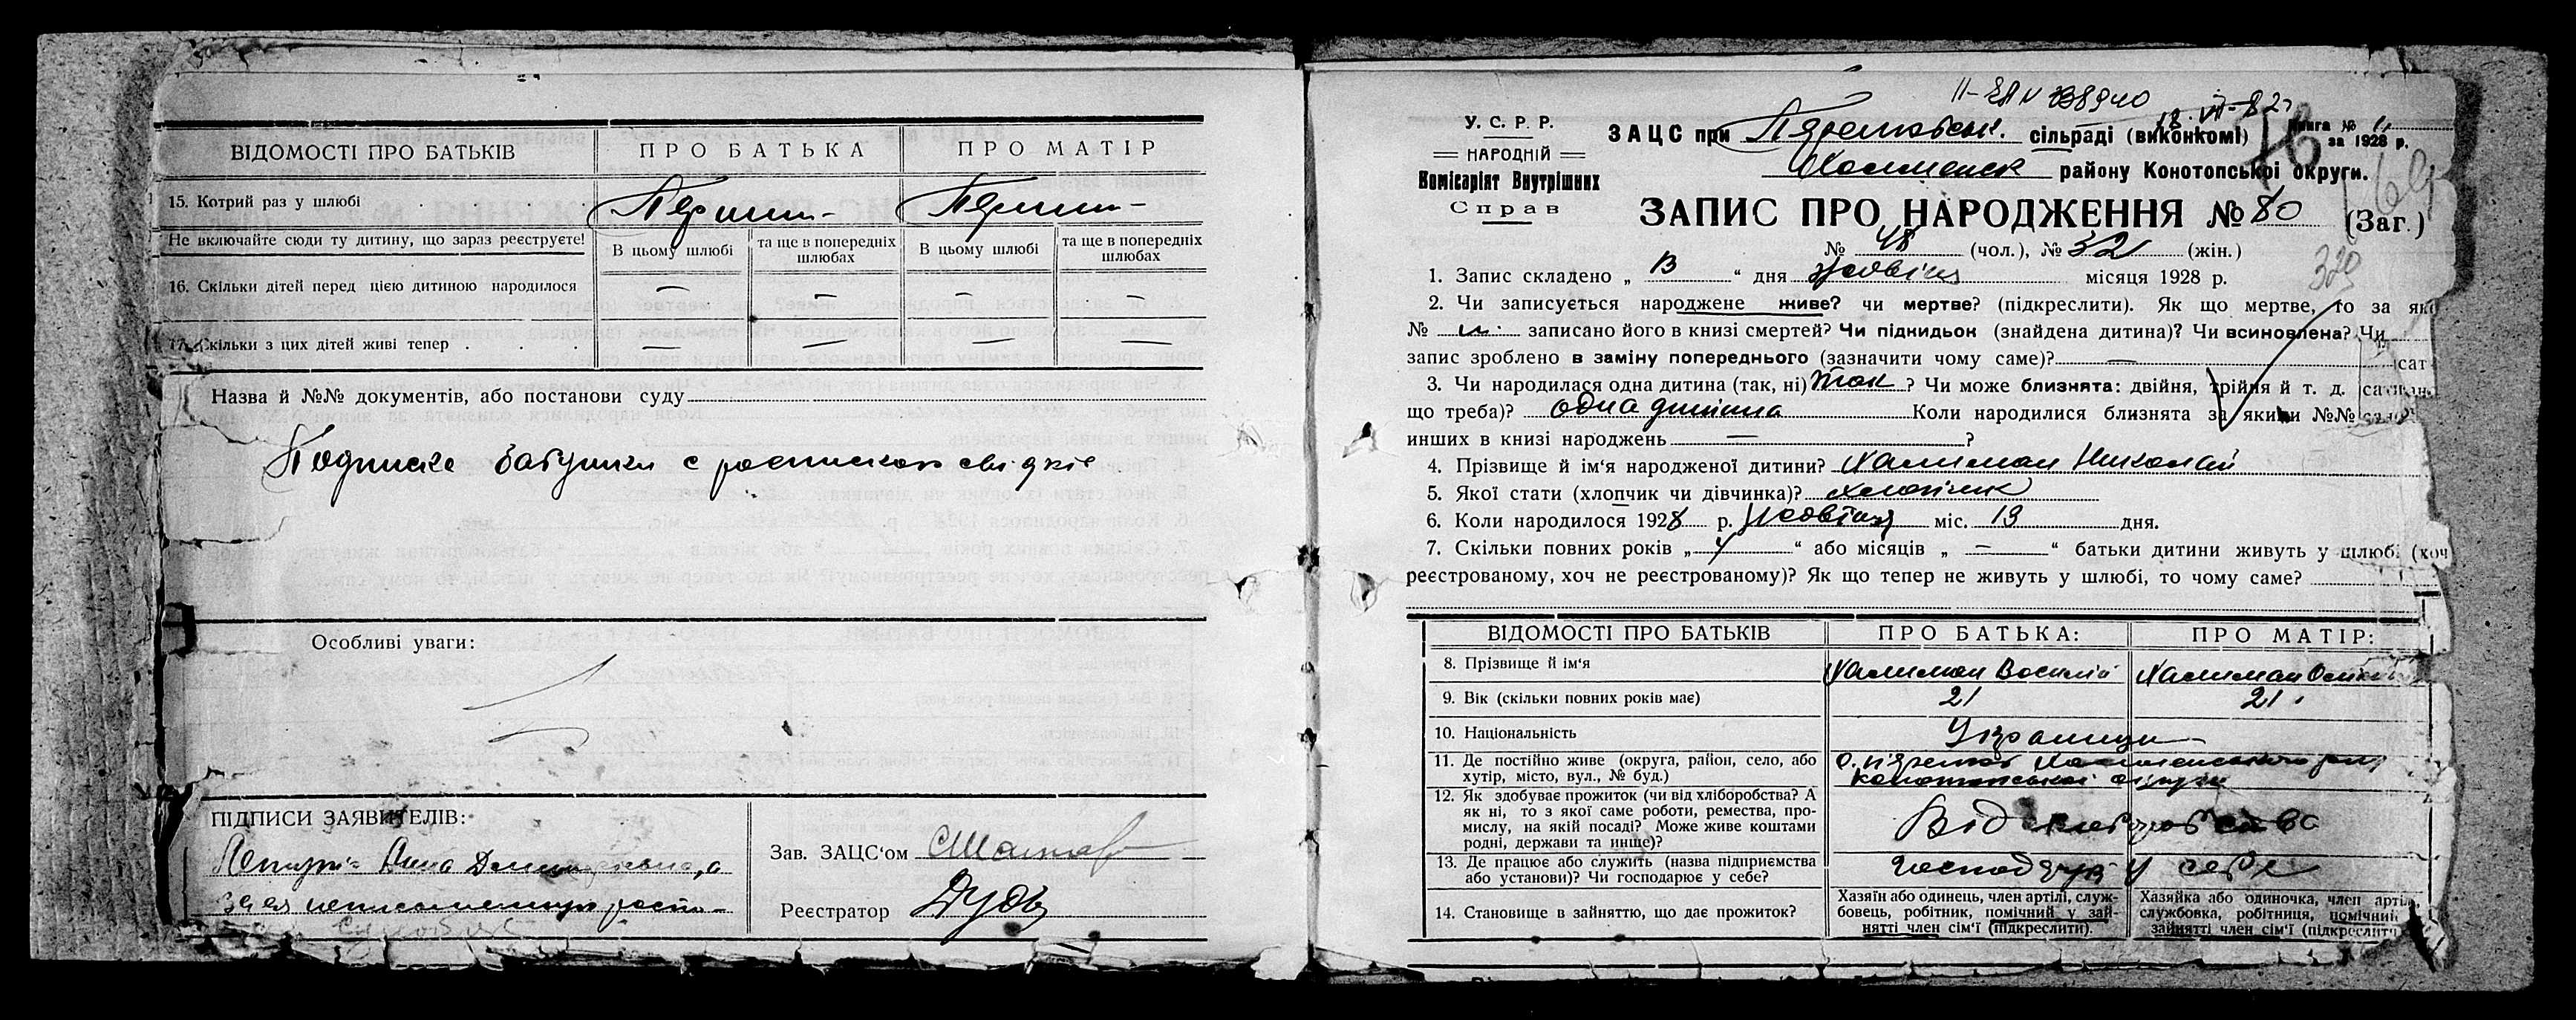 ВІДОМОСТІ ПРО БАТЬКІВ
ПРО БАТЬКА
ПРО МАТІР
15. Котрий раз у шлюбі
Першии
Першии
Не включайте сюди ту дитину, що зараз реєструєте!
В цьому шлюбі
та ще в попередніх шлюбах
В цьому шлюбі
та ще в попередніх шлюбах
16. Скільки дітей перед цією дитиною народилося
— — — —
17. Скільки з цих дітей живі тепер
— — — —
Назва й №№ документів, або постанови суду
Подписка бабушки с росписком свідків
Особливі уваги:
ПІДПИСИ ЗАЯВИТЕЛІВ:
Анна
за ея неписьменную роспи-
Зав. ЗАЦС'ом
Реєстратор Дудь
18.VII-82
У. С. Р. Р.
НАРОДНІЙ
Комісаріят Внутрішних
Справ
ЗАЦС при сільраді (виконкомі)
Книга № за 1928 р.
району Конотопської округи.
ЗАПИС ПРО НАРОДЖЕННЯ № 80 (Заг.)
№ 48 (чол.), № 32 (жін.)
1. Запис складено „ 13 “ дня жовтня місяця 1928 р.
2. Чи записується народжене живе? чи мертве? (підкреслити). Як що мертве, то за як
№ записано його в книзі смертей? Чи підкидьок (знайдена дитина)? Чи всиновлена? Чи
запис зроблено в заміну попереднього (зазначити чому саме)? —
3. Чи народилася одна дитина (так, ні) так ? Чи може близнята: двійня, трійня й т. д.
що треба)? одна дитина Коли народилися близнята за якими №№
инших в книзі народжень — ?
4. Прізвище й ім'я народженої дитини? Халиман Николай
5. Якої стати (хлопчик чи дівчинка)? хлопчик
6. Коли народилося 1928 р. жовтня міс. 13 дня.
7. Скільки повних років „ “ або місяців „ — “ батьки дитини живуть у шлюбі (хоч
реєстрованому, хоч не реєстрованому)? Як що тепер не живуть у шлюбі, то чому саме?
ВІДОМОСТІ ПРО БАТЬКІВ
ПРО БАТЬКА:
ПРО МАТІР:
8. Прізвище й ім'я
Халиман Василій
Халиман
9. Вік (скільки повних років має)
21
21
10. Національність
Українци
11. Де постійно живе (округа, район, село, або
хутір, місто, вул., № буд.)
Конотопської округи
12. Як здобуває прожиток (чи від хліборобства? А
як ні, то з якої саме роботи, ремества, про-
мислу, на якій посаді? Може живе коштами
родні, держави та инше)?
Від хліборобства
13. Де працює або служить (назва підприємства
або установи)? Чи господарює у себе?
господарує у себе
14. Становище в зайняттю, що дає прожиток?
Хазяїн або одинець, член артілі, служ-
бовець, робітник, помічний у зай-
нятті член сім'ї (підкреслити).
Хазяйка або одиночка, член артіл
службовка, робітниця, помічний
зайнятті член сім'ї (підкреслити